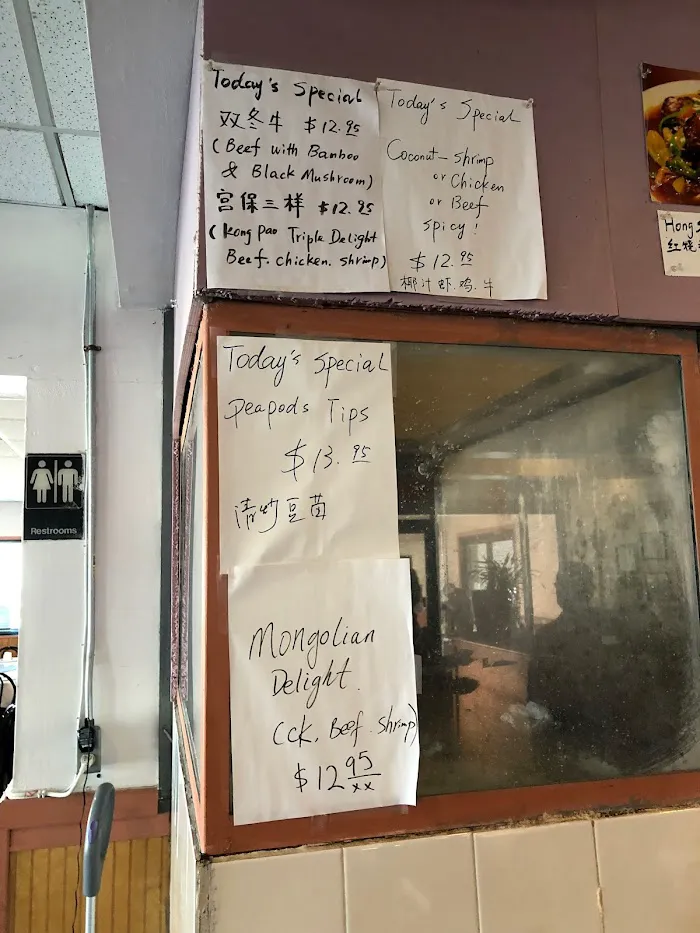 Today's Special
双冬牛 $12.95
(Beef with Bamboo
& Black Mushroom)
宫保三样 $12.95
(Kong Pao Triple Delight
Beef. chicken. shrimp)
Today's Special
Coconut-shrimp
or Chicken
or Beef
spicy!
$12.95
椰汁虾.鸡.牛
Hong
红烧
Today's Special
peapods Tips
$13.95
清炒豆苗
Mongolian
Delight.
(ck. Beef. shrimp)
$12 95
xx
Restrooms